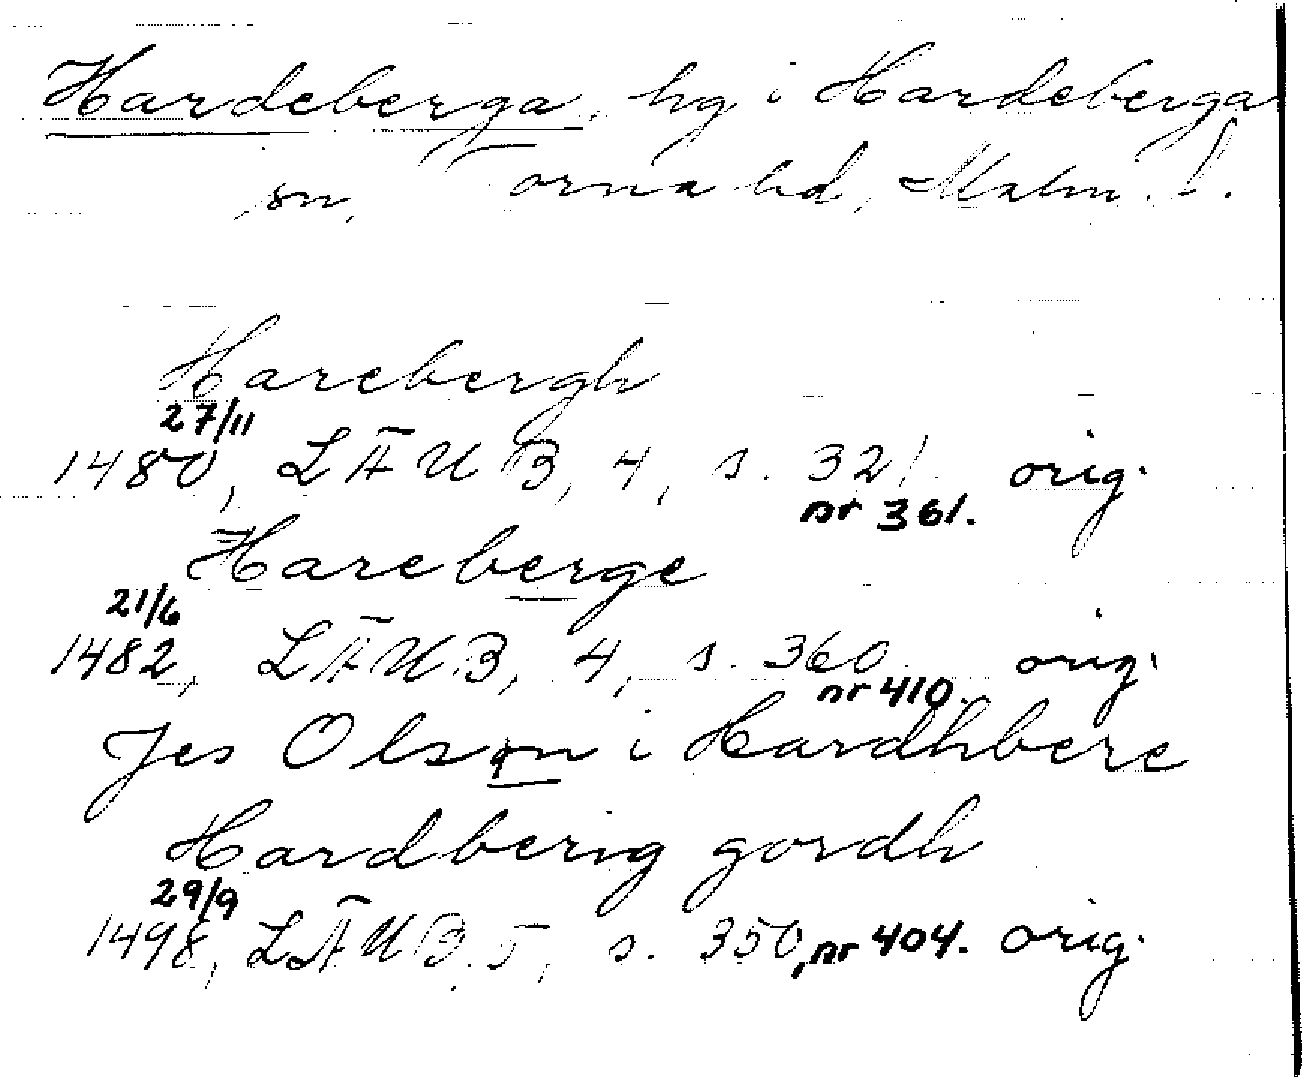 Hardeberga, hg i Hardeberga
sn, Torna hd, Malm. l.
Harebergh
27/11
1480, LÄUB, 4, s. 321. orig.
nr 361.
Hareberge
21/6
1482, LÄUB, 4, s. 360. orig.
nr 410.
Jes Olsøn i Hardhbere
Hardberig gordh
29/9
1498, LÄUB. 5, s. 350, nr 404. orig.